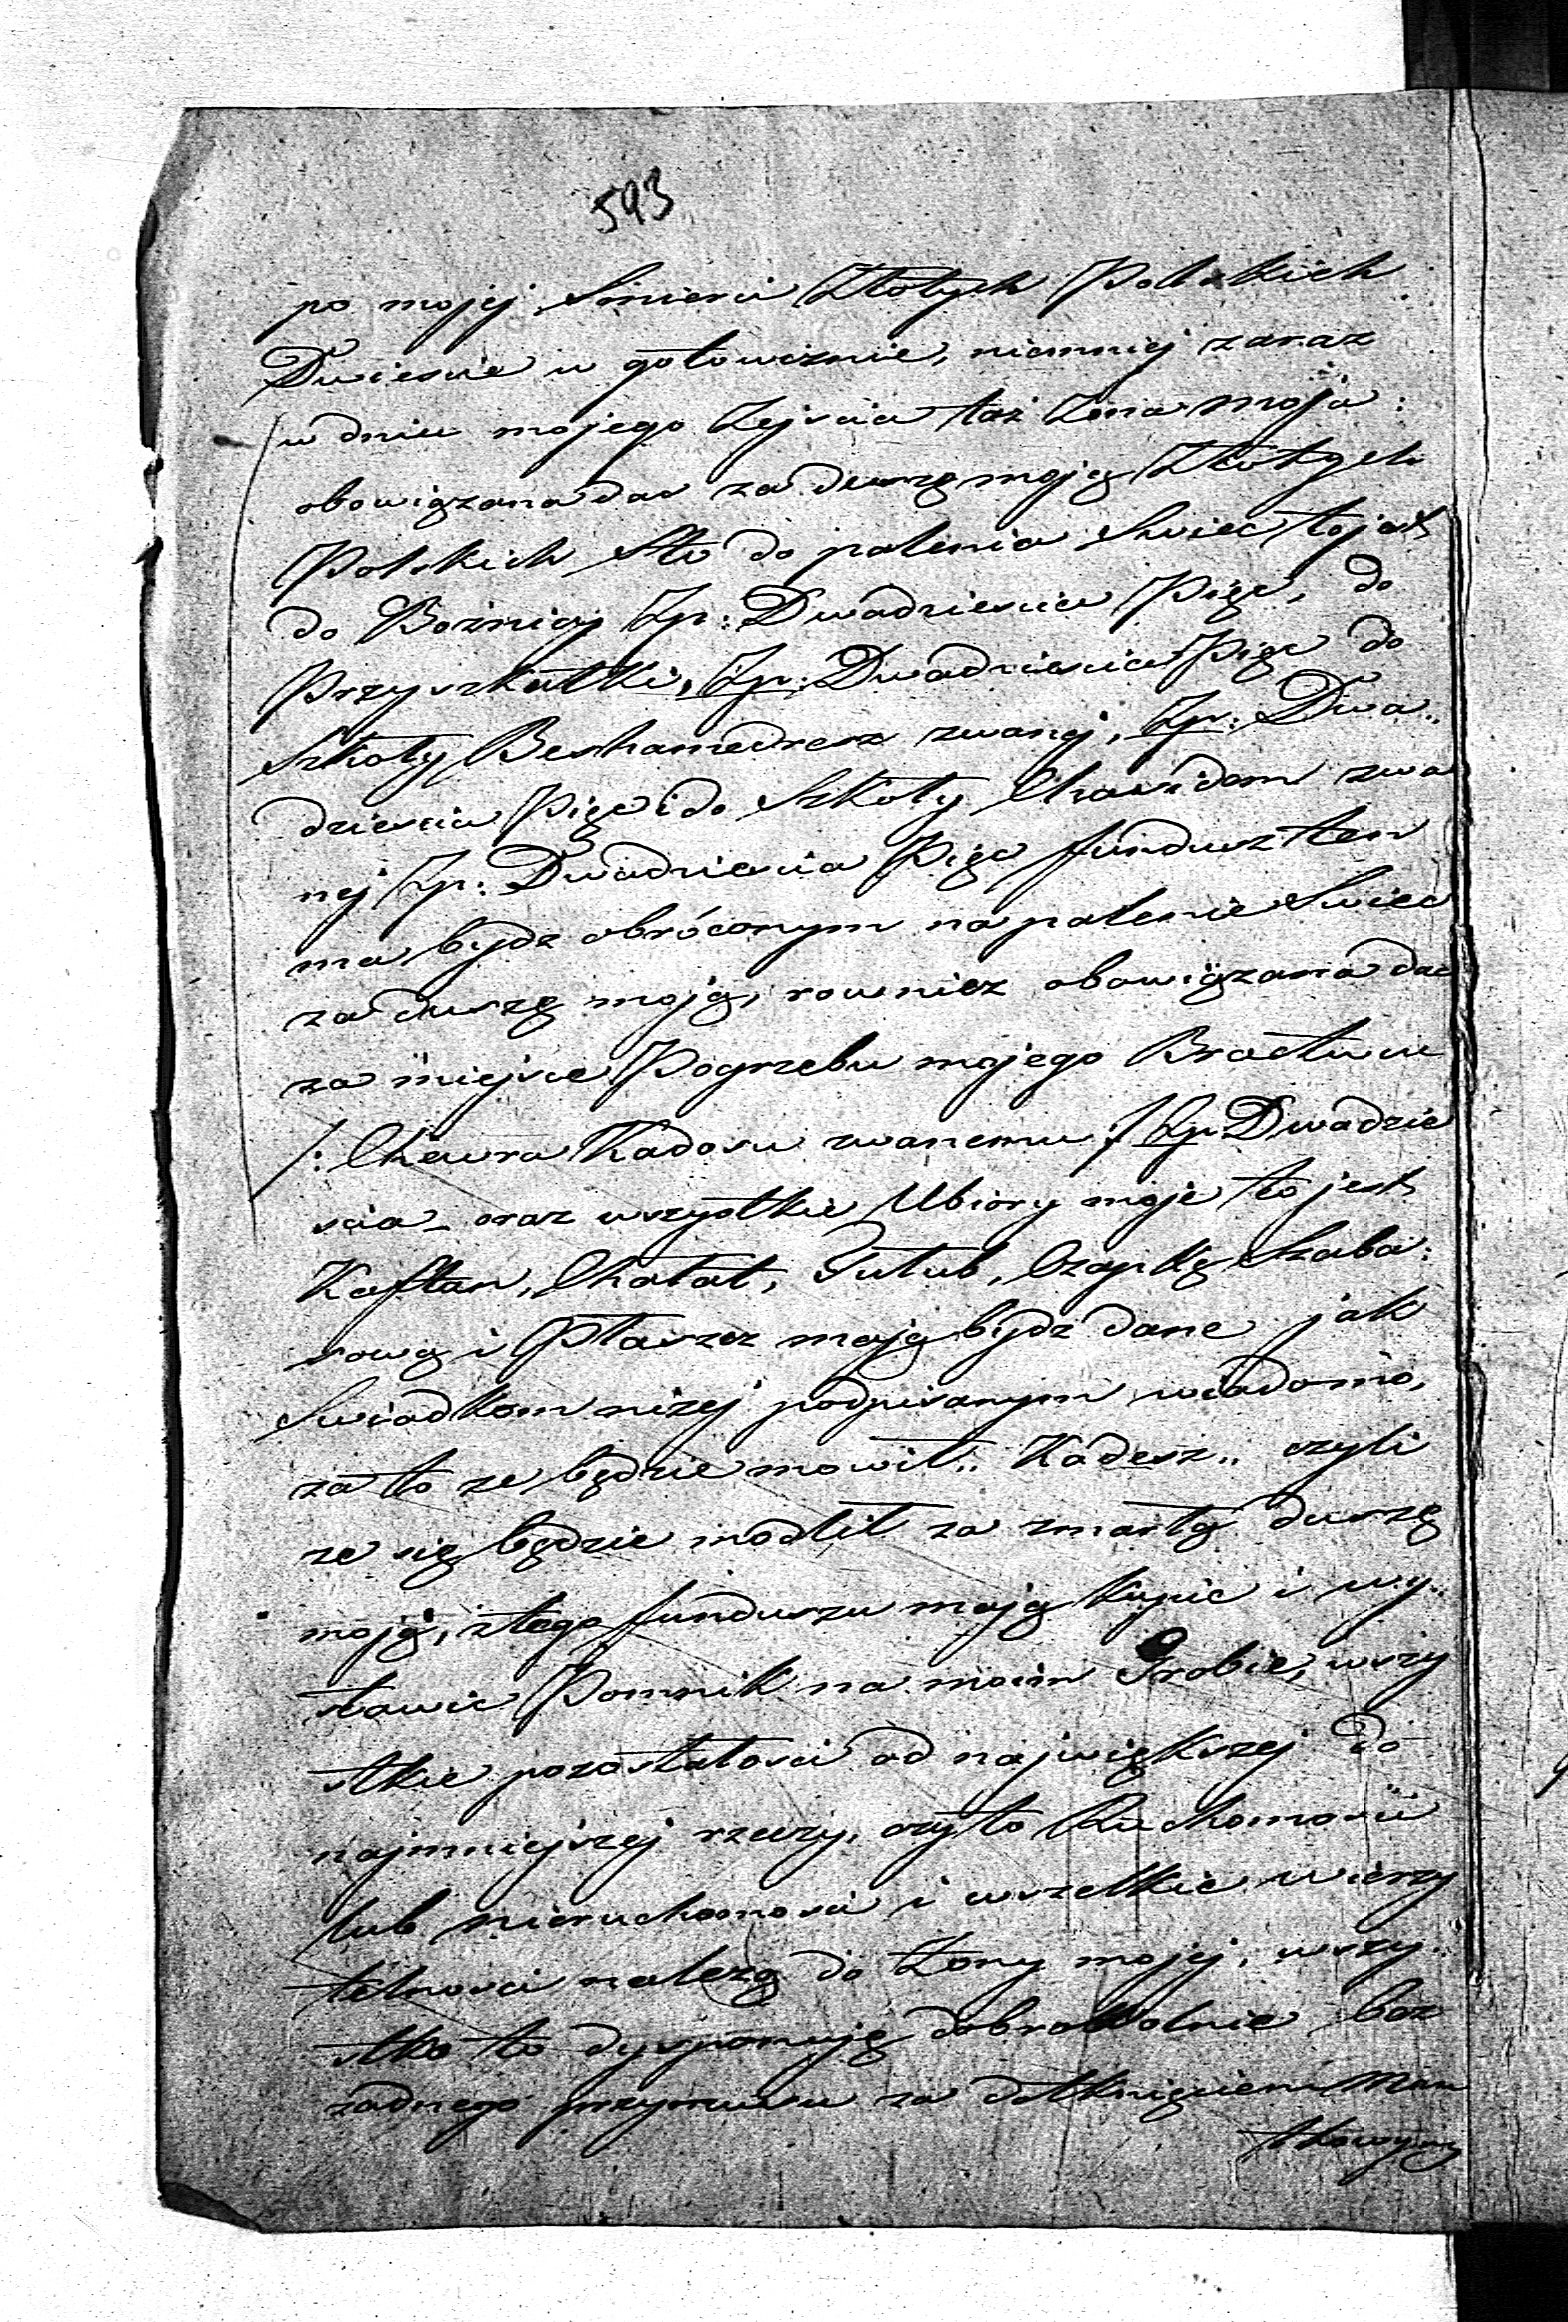 593
po mojej Smierci Złotych Polskich
Dwieście w gotowiznie, niemniej zaraz
w dniu mojego Zejscia taż Żona moja
obowiązana dac za duszę moję Złotych
Polskich Sto do palenia Swiec to jest
do Bożnicy Zp: Dwadziescia Pięc, do
Przyszkułki, Zp: Dwadziescia Pięc do
Szkoły Beshamedresz zwanej, Zp: Dwa„
dziescia Pięc i do Szkoły Chasidom zwa
nej Zp: Dwadziescia Pięc fundusz ten
ma bydz obróconym na palenie Swiec
za duszę moją, rowniez obowiązana dac
za miejsce Pogrzebu mojego Bractwu
/: Chewra Kadosu zwanemu :/ Zp. Dwadzie
scia oraz wszystkie Ubiory moje to jest
Kaftan, Chałat, Tułub, Czapkę Szaba:
sową i Płaszcz mają bydz dane jak
Swiadkom niżej podpisanym wiadomo,
za to ze będzie mowił „Kadesz„ czyli
ze się będzie modlił za zmarłą duszę
moją, z tego funduszu mają kupic i wy„
stawic Pomnik na moim Grobie, wszy
stkie pozostałosci od największej do
najmniejszej rzeczy, czy to Ruchomosci
lub nieruchomosci i wszelkie wierzy
telnosci należą do Żony mojej, wszy„
stko to dysponuję dobrowolnie bez
żadnego przymusu za dotknięciem Man
tkowym